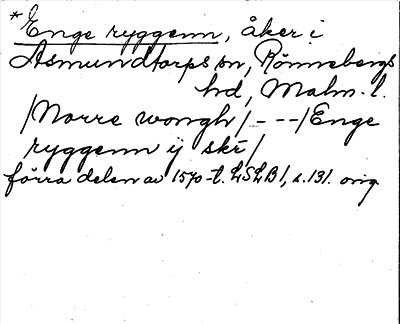 * Enge ryggenn, åker i
Asmundtorps sn, Rönnebergs
hd, Malm. l.
/Norre wongh/ - - -/Enge
ryggenn ij skr̄/
förra delen av 1570-t. LSLB1, s.131. orig.